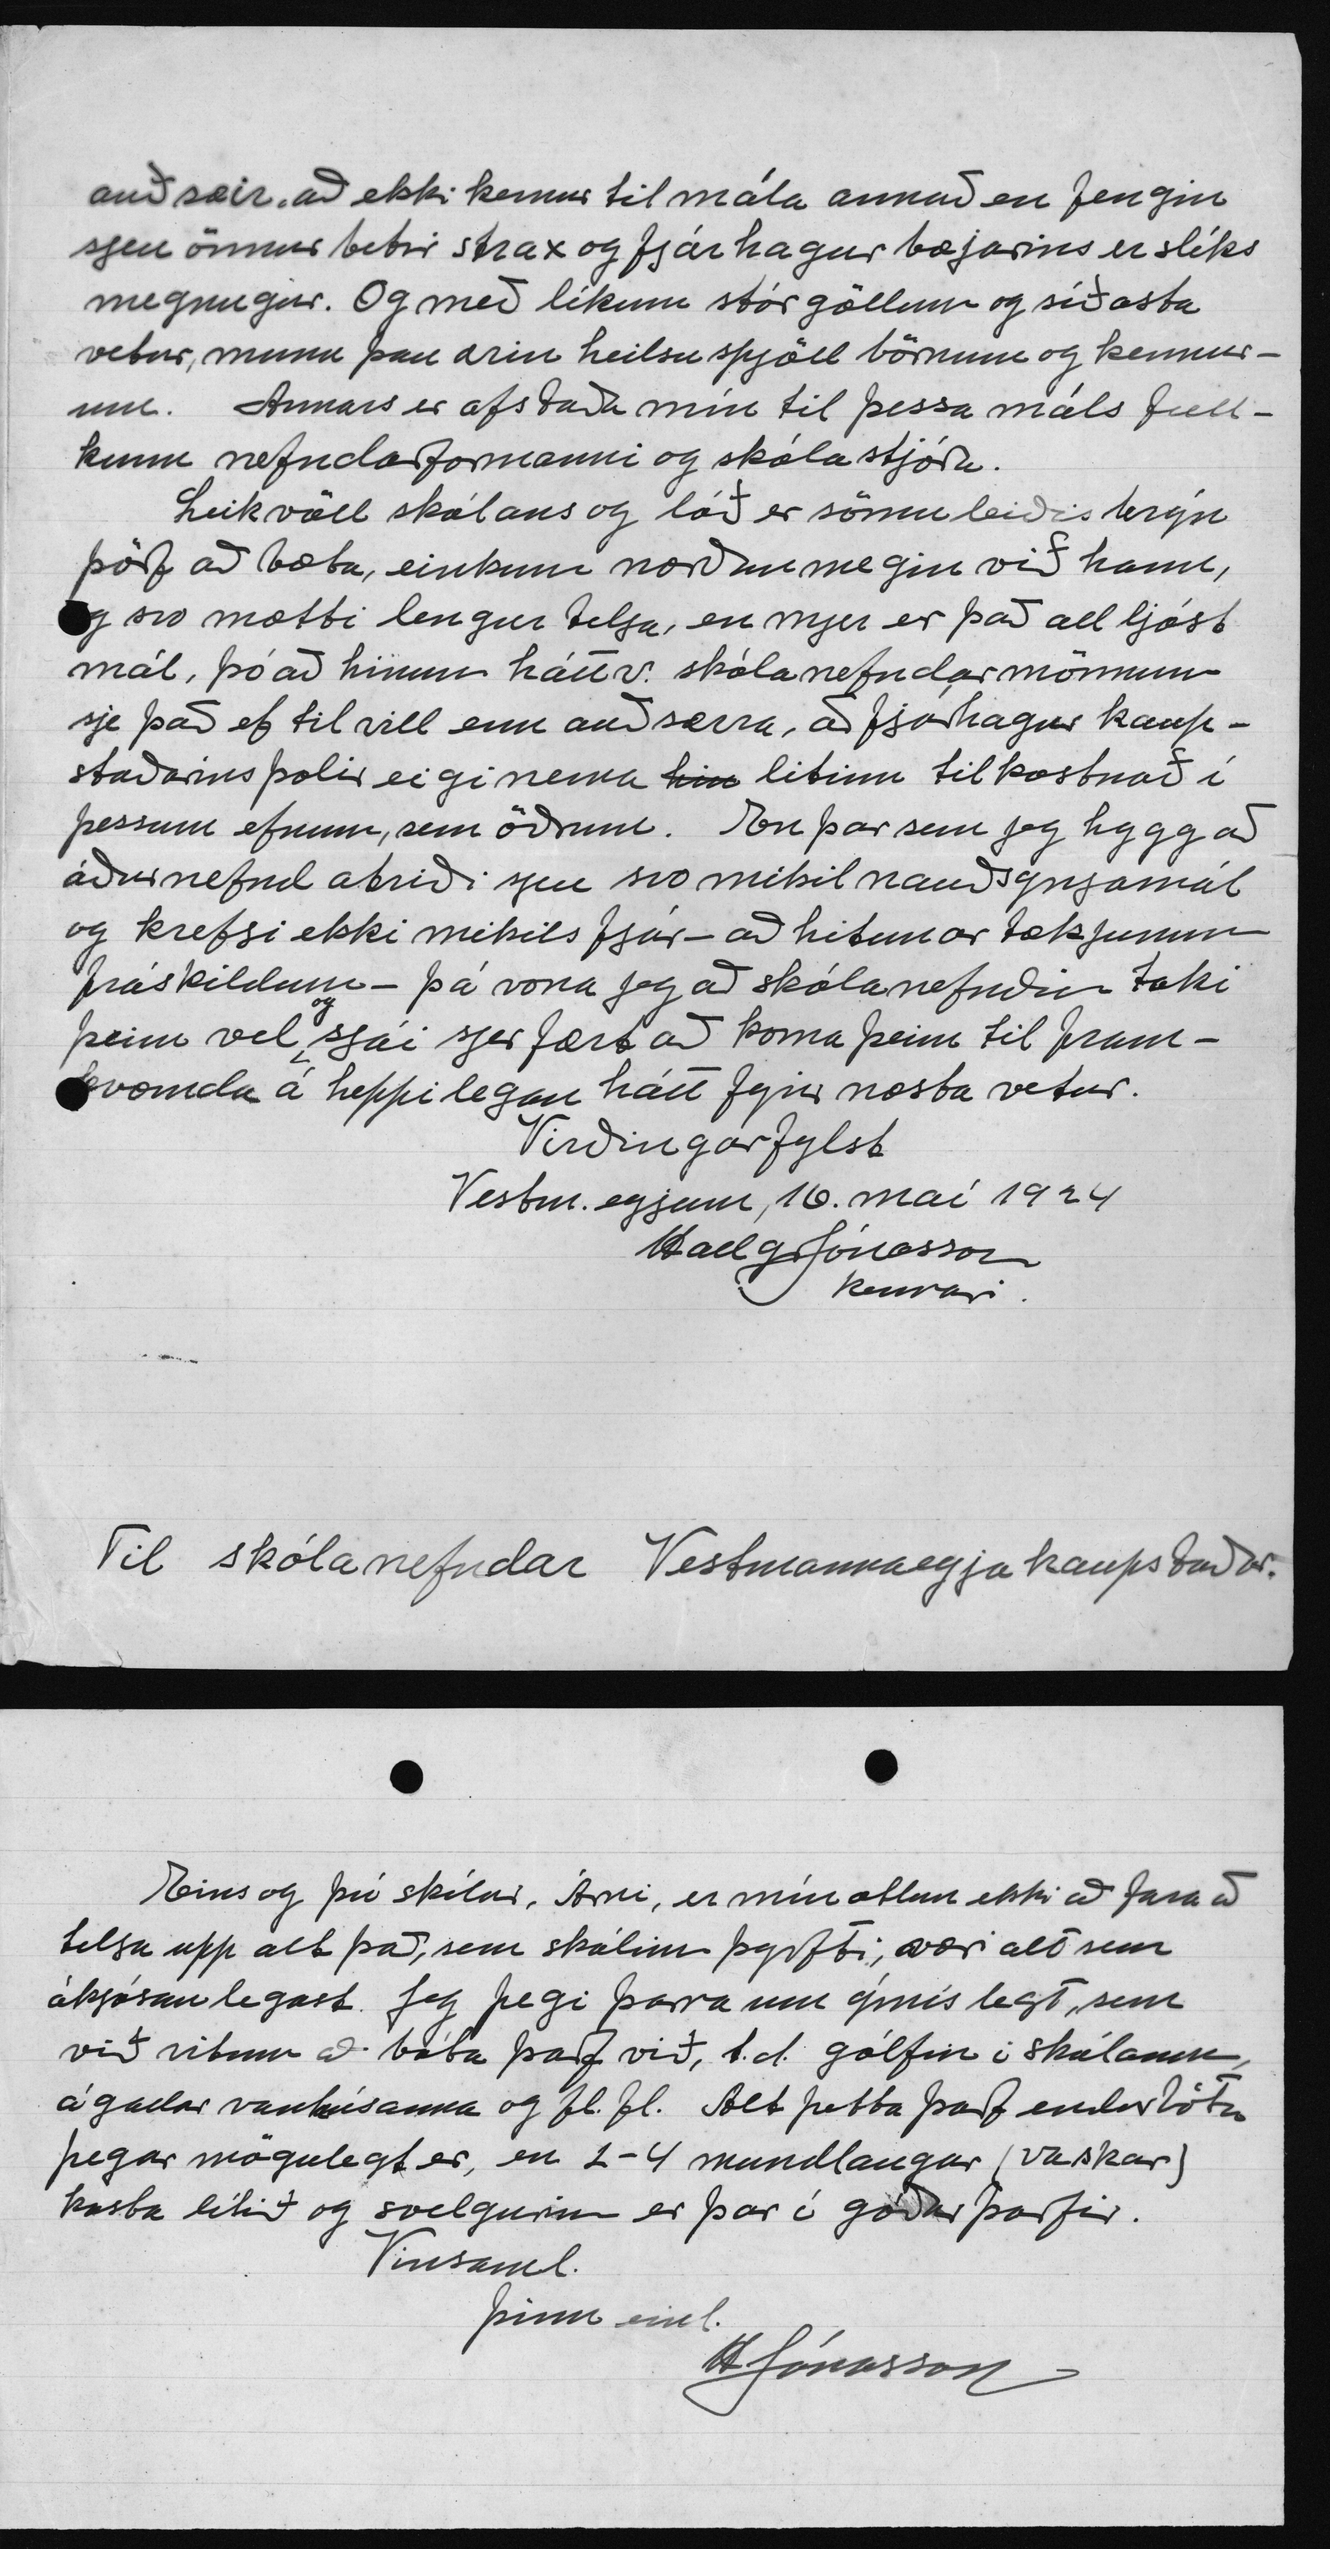 auðsæir, að ekki kemur til mála annað en fengin
sjeu önnur betri strax og fjárhagur bæjarins er slíks
megnugur. Og með líkum stórgöllum og síðasta
vetur, munu þau ærin heilsuspjöll börnum og kennur-
um. Annars er afstaða mín til þessa máls full-
kunn nefndarformanni og skólastjóra.
Leikvöll skólans og lóð er sömuleiðis brýn
þörf að bæta, einkum norðanmegin við hann,
og svo mætti lengur telja, en mjer er það all ljóst
mál, þó að hinum háttv. skólanefndarmönnum
sje það ef til vill enn auðsærra, að fjárhagur kaup-
staðarins þolir eigi nema hin lítinn tilkostnað í
þessum efnum, sem öðrum. En þar sem jeg hygg að
áðurnefnd atriði sjeu svo mikil nauðsynjamál
og krefji ekki mikils fjár - að hitunartækjunum
fráskildum - þá vona jeg að skólanefndin taki
þeim vel og sjái sjer fært að koma þeim til fram-
kvæmda á heppilegan hátt fyrir næsta vetur.
Virðingarfylst
Vestm.eyjum, 16. maí 1924
Hallgr Jónasson
kennari.
Til skólanefndar Vestmannaeyjakaupstaðar.
Eins og þú skilur, Árni, er mín ætlun ekki að fara að
telja upp alt það, sem skólinn þyrfti, væri alt sem
ákjósanlegast. Jeg þegi þarna um ýmislegt, sem
við vitum að bóta þarf við, t.d. gólfin í skólanum,
ágallar vanhúsanna og fl. fl. Alt þetta þarf endurbóta
þegar mögulegt er, en 2-4 mundlaugar (vaskar)
kosta lítið og svelgurinn er þar í góðar þarfir.
Vinsaml.
þinn einl.
H Jónasson